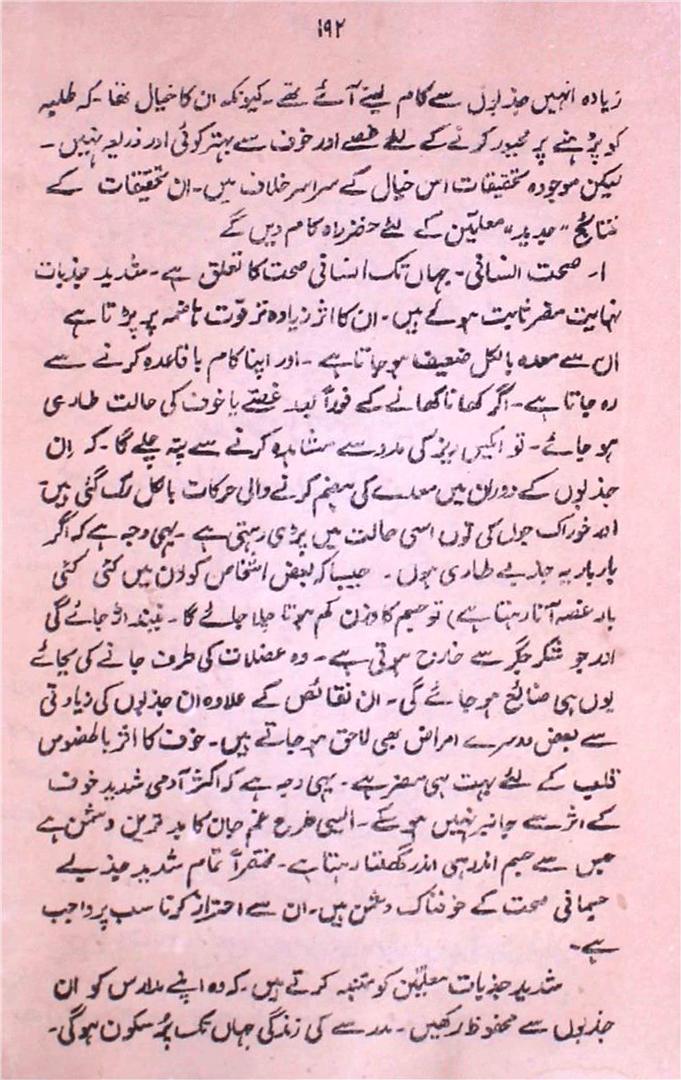 ۱۹۲
زیادہ انہیں جذبوں سے کام لیتے آئے تھے۔ کیونکہ ان کا خیال تھا۔ کہ طلبہ
کو پڑھنے پر مجبور کرنے کے لئے غصے اور خوف سے بہتر کوئی اور ذریعہ نہیں۔
لیکن موجودہ تحقیقات اس خیال کے سراسر خلاف ہیں۔ ان تحقیقات کے
نتائج "جدید" معلمین کے لئے خضرِ راہ کا کام دیں گے
۱۔ صحت انسانی۔ جہاں تک انسانی صحت کا تعلق ہے۔ شدید جذبات
نہایت مضر ثابت ہوئے ہیں۔ ان کا اثر زیادہ تر قوت ہاضمہ پر پڑتا ہے
ان سے معدہ بالکل ضعیف ہو جاتا ہے۔ اور اپنا کام باقاعدہ کرنے سے
رہ جاتا ہے۔ اگر کھانا کھانے کے فوراً بعد غصے یا خوف کی حالت طاری
ہو جائے۔ تو ایکس ریز کی مدد سے مشاہدہ کرنے سے پتہ چلے گا۔ کہ اِن
جذبوں کے دوران میں معدے کی ہضم کرنے والی حرکات بالکل رک گئی ہیں
اور خوراک جوں کی توں اسی حالت میں پڑی رہتی ہے۔ یہی وجہ ہے کہ اگر
بار بار یہ جذبے طاری ہوں۔ جیسا کہ بعض اشخاص کو دن میں کئی کئی
بار غصہ آتا رہتا ہے) تو جسم کا وزن کم ہوتا چلا جائے گا۔ نیند اڑ جائے گی
اور جو شکر جگر سے خارج ہوتی ہے۔ وہ عضلات کی طرف جانے کی بجائے
یوں ہی ضائع ہو جائے گی۔ ان نقائص کے علاوہ ان جذبوں کی زیادتی
سے بعض دوسرے امراض بھی لاحق ہو جاتے ہیں۔ خوف کا اثر بالخصوص
قلب کے لئے بہت ہی مضر ہے۔ یہی وجہ ہے کہ اکثر آدمی شدید خوف
کے اثر سے جانبر نہیں ہو سکے۔ اسی طرح غم جان کا بدترین دشمن ہے
جس سے جسم اندر ہی اندر گھلتا رہتا ہے۔ مختصراً تمام شدید جذبے
جسمانی صحت کے خوفناک دشمن ہیں۔ ان سے احتراز کرنا سب پر واجب
ہے۔
شدید جذبات معلمین کو متنبہ کرتے ہیں۔ کہ وہ اپنے مدارس کو ان
جذبوں سے محفوظ رکھیں۔ مدرسے کی زندگی جہاں تک پُر سکون ہوگی۔